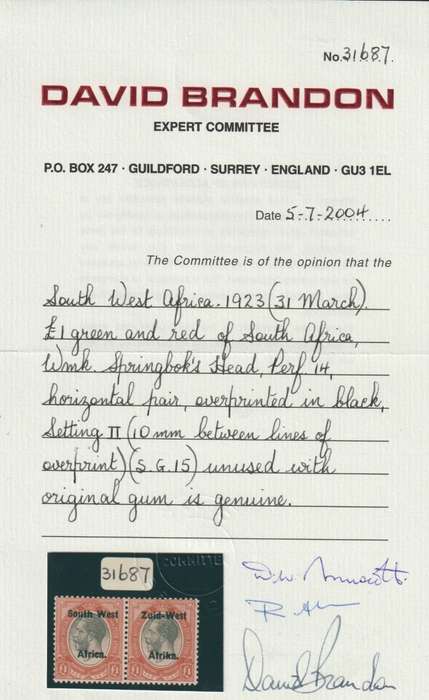 No. 31687.
DAVID BRANDON
EXPERT COMMITTEE
P.O. BOX 247 · GUILDFORD · SURREY · ENGLAND · GU3 1EL
Date 5-7-2004
The Committee is of the opinion that the
South West Africa. 1923 (31 March).
£1 green and red of South Africa,
Wmk. Springbok's Head, Perf. 14,
horizontal pair, overprinted in black,
Setting II (10 mm between lines of
overprint) (S.G. 15) unused with
original gum is genuine.
COMMITTEE
31687
South West Zuid-West
Africa. Afrika.
£1 £1
David Brandon